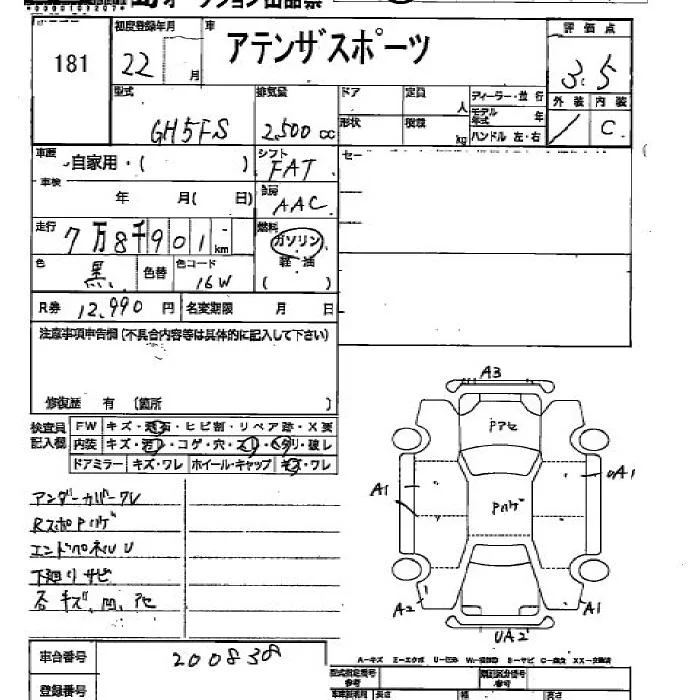 オークション出品票
181
初度登録年月
22 月
車
アテンザスポーツ
評価点
3.5
外装 内装
C
型式
GH5FS
排気量
2,500 cc
ドア
定員
人
形状
積載
kg
ディーラー・並行
モデル年式 年
ハンドル 左・右
車歴
自家用・( )
シフト
FAT
セー
車検
年 月( 日)
冷房
AAC
走行
7万8千901 km
燃料
ガソリン
軽油
( )
色
黒
色替
色コード
16W
R券 12,990 円
名変期限 月 日
注意事項申告欄(不具合内容等は具体的に記入して下さい)
修復歴 有 (箇所 )
検査員記入欄
FW キズ・飛石・ヒビ割・リペア跡・X要
内装 キズ・汚レ・コゲ・穴・スレ・ヘタリ・破レ
ドアミラー キズ・ワレ ホイール・キャップ キズ・ワレ
アンダーカバーワレ
RスポPハゲ
エンドパネルU
下廻りサビ
各キズ、凹、アセ
A3
Pアセ
A1
UA1
Pハゲ
A2
A1
UA2
車台番号
200838
登録番号
A-キズ E-エクボ U-凹み W-補修跡 S-サビ C-腐食 XX-交換済
型式指定番号
類別区分番号
参考
長さ 幅 高さ